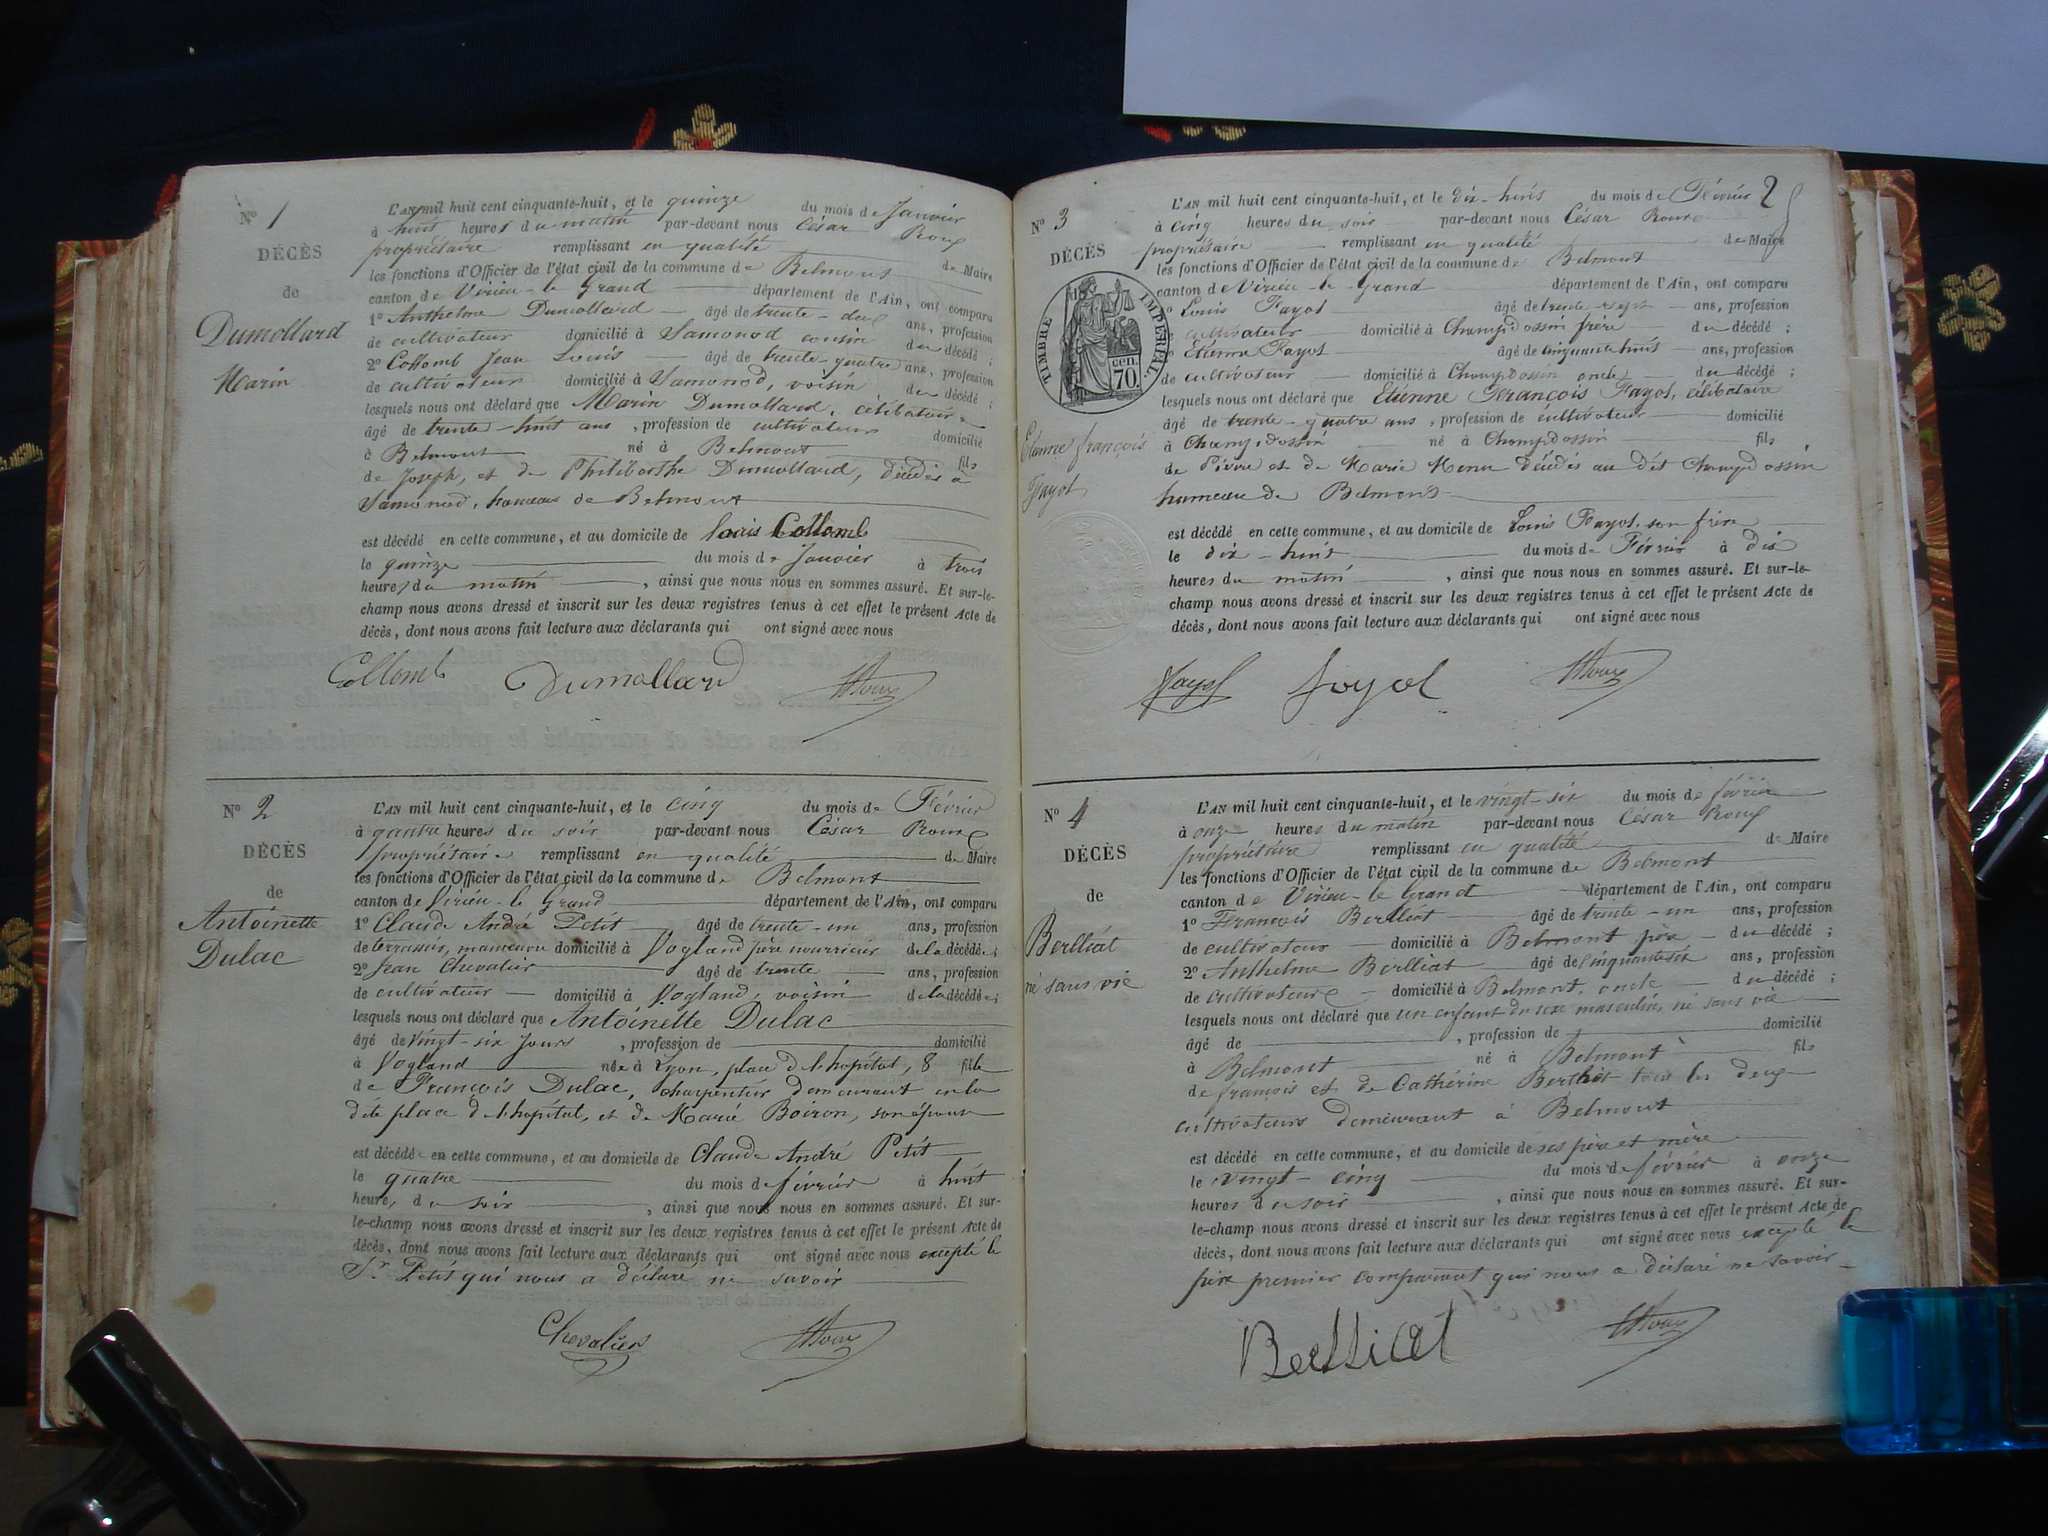 N° 1
DÉCÈS
de
Dumollard
Marin
L'AN mil huit cent cinquante-huit, et le quinze du mois de Janvier
à huit heures du matin par-devant nous César Roux
propriétaire remplissant en qualité de Maire
les fonctions d'Officier de l'état civil de la commune de Belmont
canton de Virieu-le Grand département de l'Ain, ont comparu
1° Anthelme Dumollard âgé de trente-deux ans, profession
de cultivateur domicilié à Samonod cousin du décédé ;
2° Collomb Jean Louis âgé de trente-quatre ans, profession
de cultivateur domicilié à Samonod, voisin du décédé ;
lesquels nous ont déclaré que Marin Dumollard, célibataire
âgé de trente-huit ans, profession de cultivateur domicilié
à Belmont né à Belmont fils
de Joseph, et de Philiberthe Dumollard, décédés à
Samonod, hameau de Belmont
est décédé en cette commune, et au domicile de Louis Collomb
le quinze du mois de Janvier à trois
heures du matin, ainsi que nous nous en sommes assuré. Et sur-le-
champ nous avons dressé et inscrit sur les deux registres tenus à cet effet le présent Acte de
décès, dont nous avons fait lecture aux déclarants qui ont signé avec nous
Collomb Dumollard Roux
N° 2
DÉCÈS
de
Antoinette
Dulac
L'AN mil huit cent cinquante-huit, et le cinq du mois de Février
à quatre heures du soir par-devant nous César Roux
propriétaire remplissant en qualité de Maire
les fonctions d'Officier de l'état civil de la commune de Belmont
canton de Virieu-le Grand département de l'Ain, ont comparu
1° Claude André Petit âgé de trente-un ans, profession
de domicilié à Vogland père nourricier de la décédée ;
2° Jean Chevalier âgé de trente ans, profession
de cultivateur domicilié à Vogland, voisin de la décédée ;
lesquels nous ont déclaré que Antoinette Dulac
âgé de vingt-six jours, profession de domicilié
à Vogland née à Lyon, place de l'hôpital, 8 fille
de François Dulac, charpentier demeurant en la
dite place de l'hôpital, et de Marie Boiron, son épouse
est décédée en cette commune, et au domicile de Claude André Petit
le quatre du mois de février à huit
heures du soir, ainsi que nous nous en sommes assuré. Et sur-
le-champ nous avons dressé et inscrit sur les deux registres tenus à cet effet le présent Acte de
décès, dont nous avons fait lecture aux déclarants qui ont signé avec nous excepté le
Sr Petit qui nous a déclaré ne savoir
Chevalier Roux
2
N° 3
DÉCÈS
TIMBRE IMPERIAL
70 cen.
Etienne françois
Fayol
L'AN mil huit cent cinquante-huit, et le dix-huit du mois de Février
à cinq heures du soir par-devant nous César Roux
propriétaire remplissant en qualité de Maire
les fonctions d'Officier de l'état civil de la commune de Belmont
canton de Virieu-le-Grand département de l'Ain, ont comparu
1° Louis Fayol âgé de trente-sept ans, profession
cultivateur domicilié à Champdossin frère du décédé ;
Etienne Fayol âgé de cinquante huit ans, profession
de cultivateur domicilié à Champdossin oncle du décédé ;
lesquels nous ont déclaré que Etienne François Fayol, célibataire
âgé de trente-quatre ans, profession de cultivateur domicilié
à Champdossin né à Champdossin fils
de Pierre et de Marie décédés au dit Champdossin
hameau de Belmont
est décédé en cette commune, et au domicile de Louis Fayol, son frère
le dix-huit du mois de Février à dix
heures du matin, ainsi que nous nous en sommes assuré. Et sur-le-
champ nous avons dressé et inscrit sur les deux registres tenus à cet effet le présent Acte de
décès, dont nous avons fait lecture aux déclarants qui ont signé avec nous
Fayol fayol Roux
N° 4
DÉCÈS
de
Berlliat
né sans vie
L'AN mil huit cent cinquante-huit, et le vingt-six du mois de février
à onze heures du matin par-devant nous César Roux
propriétaire remplissant en qualité de Maire
les fonctions d'Officier de l'état civil de la commune de Belmont
canton de Virieu-le Grand département de l'Ain, ont comparu
1° François Berlliat âgé de trente-un ans, profession
de cultivateur domicilié à Belmont père du décédé ;
2° Anthelme Berlliat âgé de ans, profession
de cultivateur domicilié à Belmont, oncle du décédé ;
lesquels nous ont déclaré que un enfant du sexe masculin, né sans vie
âgé de , profession de domicilié
à Belmont né à Belmont fils
de françois et de Cathérine Berthet tous les deux
cultivateurs demeurant à Belmont
est décédé en cette commune, et au domicile de ses père et mère
le vingt-cinq du mois de février à onze
heures du soir, ainsi que nous nous en sommes assuré. Et sur-
le-champ nous avons dressé et inscrit sur les deux registres tenus à cet effet le présent Acte de
décès, dont nous avons fait lecture aux déclarants qui ont signé avec nous excepté le
père premier comparant qui nous a déclaré ne savoir
Berlliat Roux